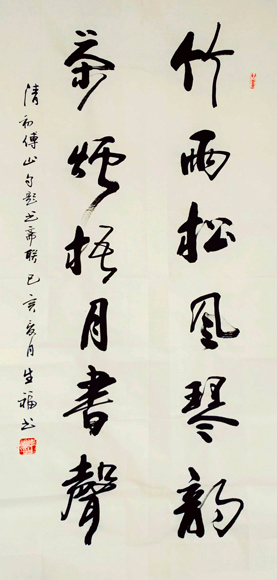 竹雨松風琴韵
茶爐梧月書聲
清初傅山句題書齋聯己亥夏月生福書